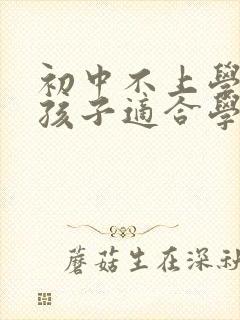 初中不上學
孩子適合學
蘑菇生在深